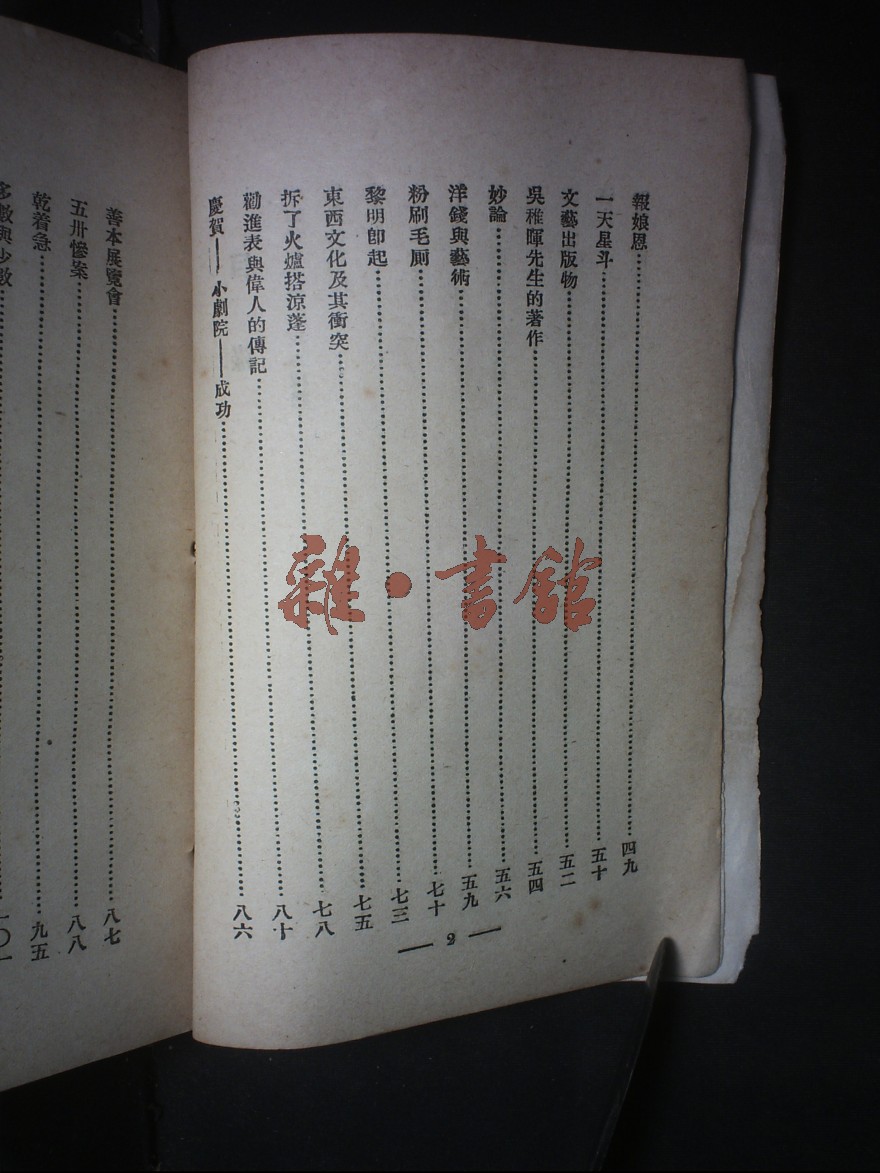 報娘恩……四九
一天星斗……五十
文藝出版物……五二
吳稚暉先生的著作……五四
妙論……五六
洋錢與藝術……五九
粉刷毛厠……七十
黎明卽起……七三
東西文化及其衝突……七五
拆了火爐搭涼蓬……七八
勸進表與偉人的傳記……八十
慶賀——小劇院——成功……八六
— 2 —
善本展覽會……八七
五卅慘案……八八
乾着急……九五
多數與少數……一〇一
雜·書館